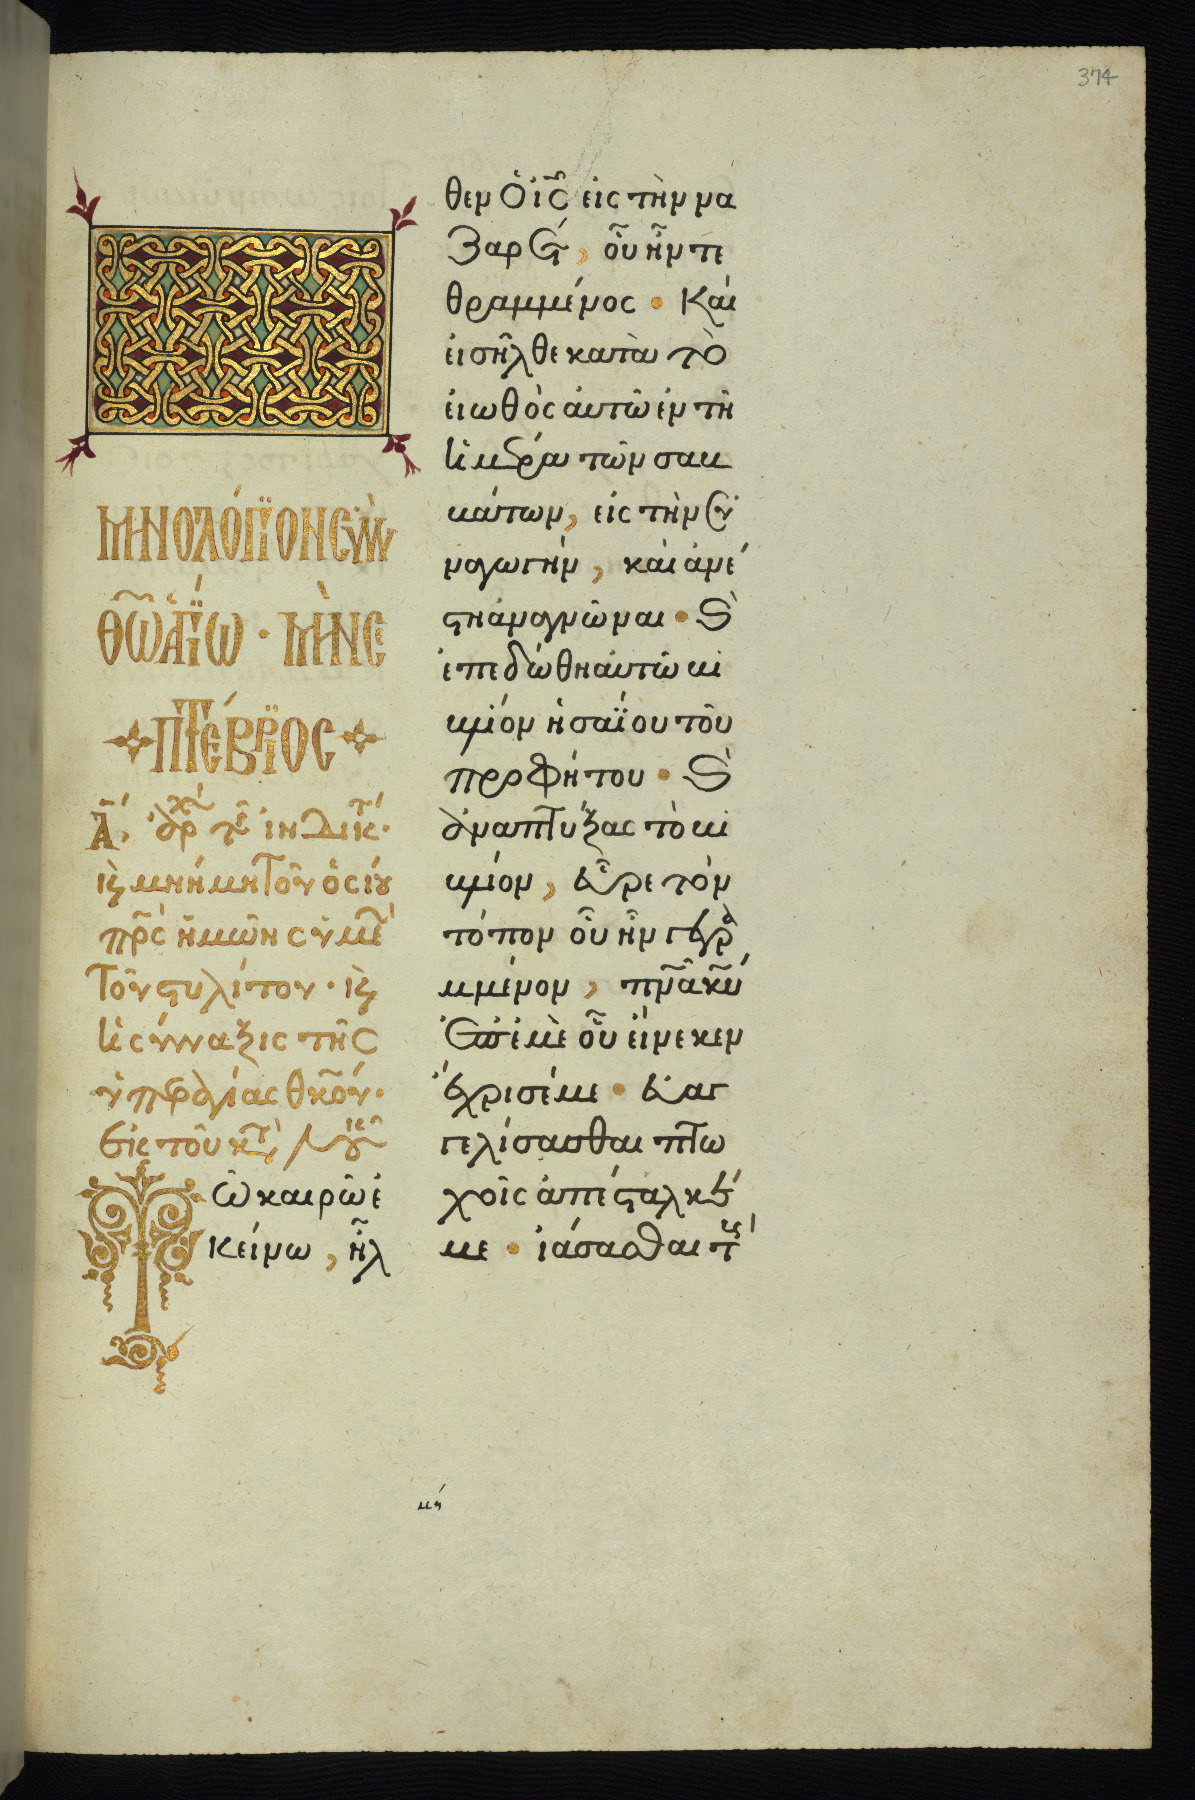 374
ΜΗΝΟΛΟΓΙΟΝ ΣῪΝ
ΘΩ͂ ἉΓΊΩ · ΜῊΝ ΣΕ
ΠΤΈΒΡΙΟΣ
Α̅. ἀρχ τῆς ἰνδίκτ·
κ̀ μνήμη τοῦ ὁσίου
πρ̅ς ἡμῶν συμε
τοῦ στυλίτου · κ̀
ἡ σύναξις τῆς
ὑπεραγίας θκ̅ου·
ἐκ τοῦ κτ̀ λουκ
Τῶ καιρῶ ἐ
κείνω, ἦλ
θεν ὁ ι̅ς̅ εἰς τὴν να
ζαρέτ, οὗ ἦν τε
θραμμένος · Καὶ
εἰσῆλθε κατὰ τὸ
εἰωθὸς αὐτῶ ἐν τῆ
ἡμέρα τῶν σαβ
βάτων, εἰς τὴν συ
ναγωγὴν, καὶ ἀνέ
στη ἀναγνῶναι · κ̀
ἐπεδόθη αὐτῶ βι
βλίον ἡσαΐου τοῦ
προφήτου · κ̀
ἀναπτύξας τὸ βι
βλίον, εὗρε τὸν
τόπον οὗ ἦν γεγρα
μμένον, πν̅α̅ κ̅υ̅
ἐπ' ἐμὲ οὗ εἵνεκεν
ἔχρισέ με · εὐαγ
γελίσασθαι πτω
χοῖς ἀπέσταλκέ
με · ἰάσασθαι τοὺς
μή